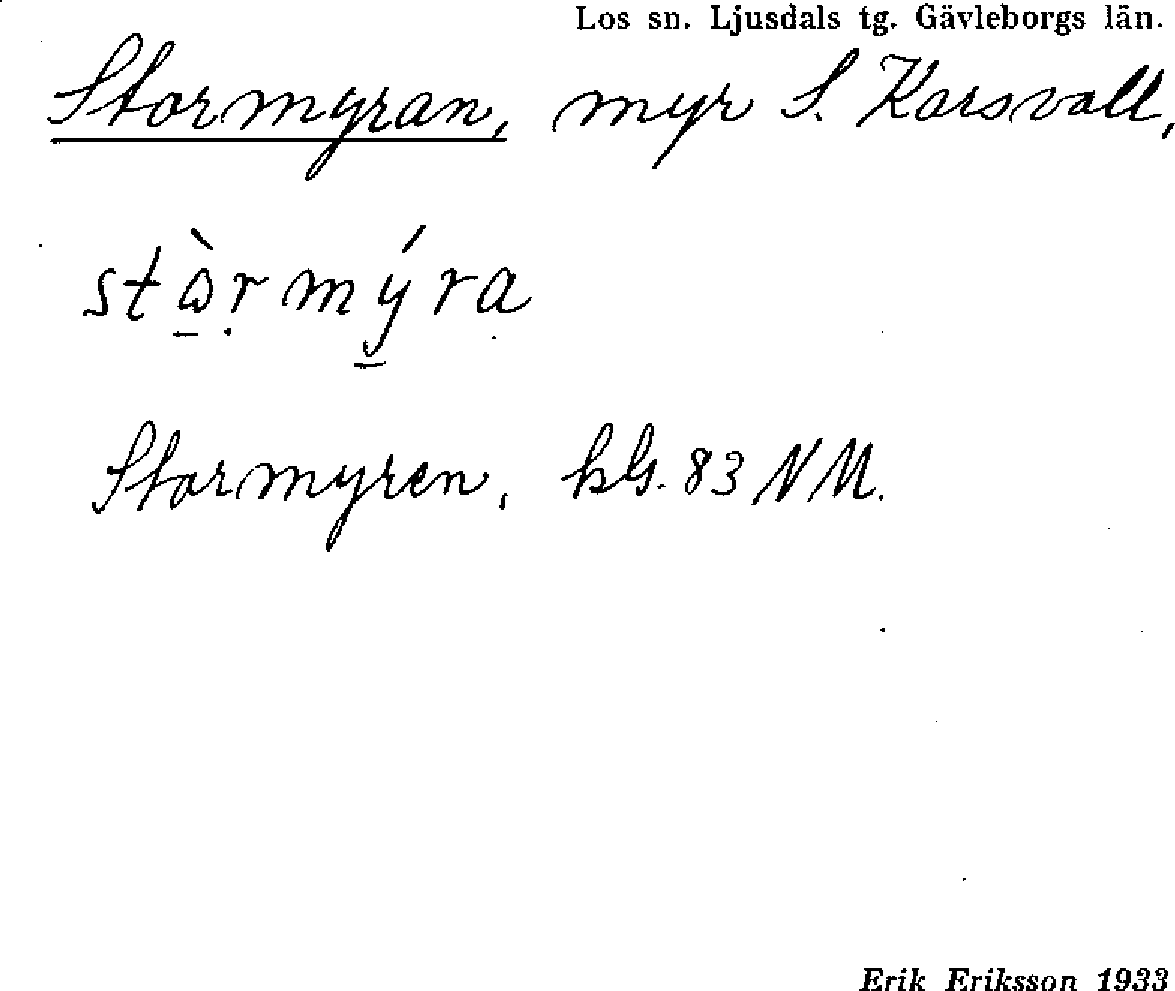 Los sn. Ljusdals tg. Gävleborgs län.
Stormyran, myr S. Karsvall,
stὼ̱ṛmý̱rạ
Stormyren, kbl. 83 NM.
Erik Eriksson 1933